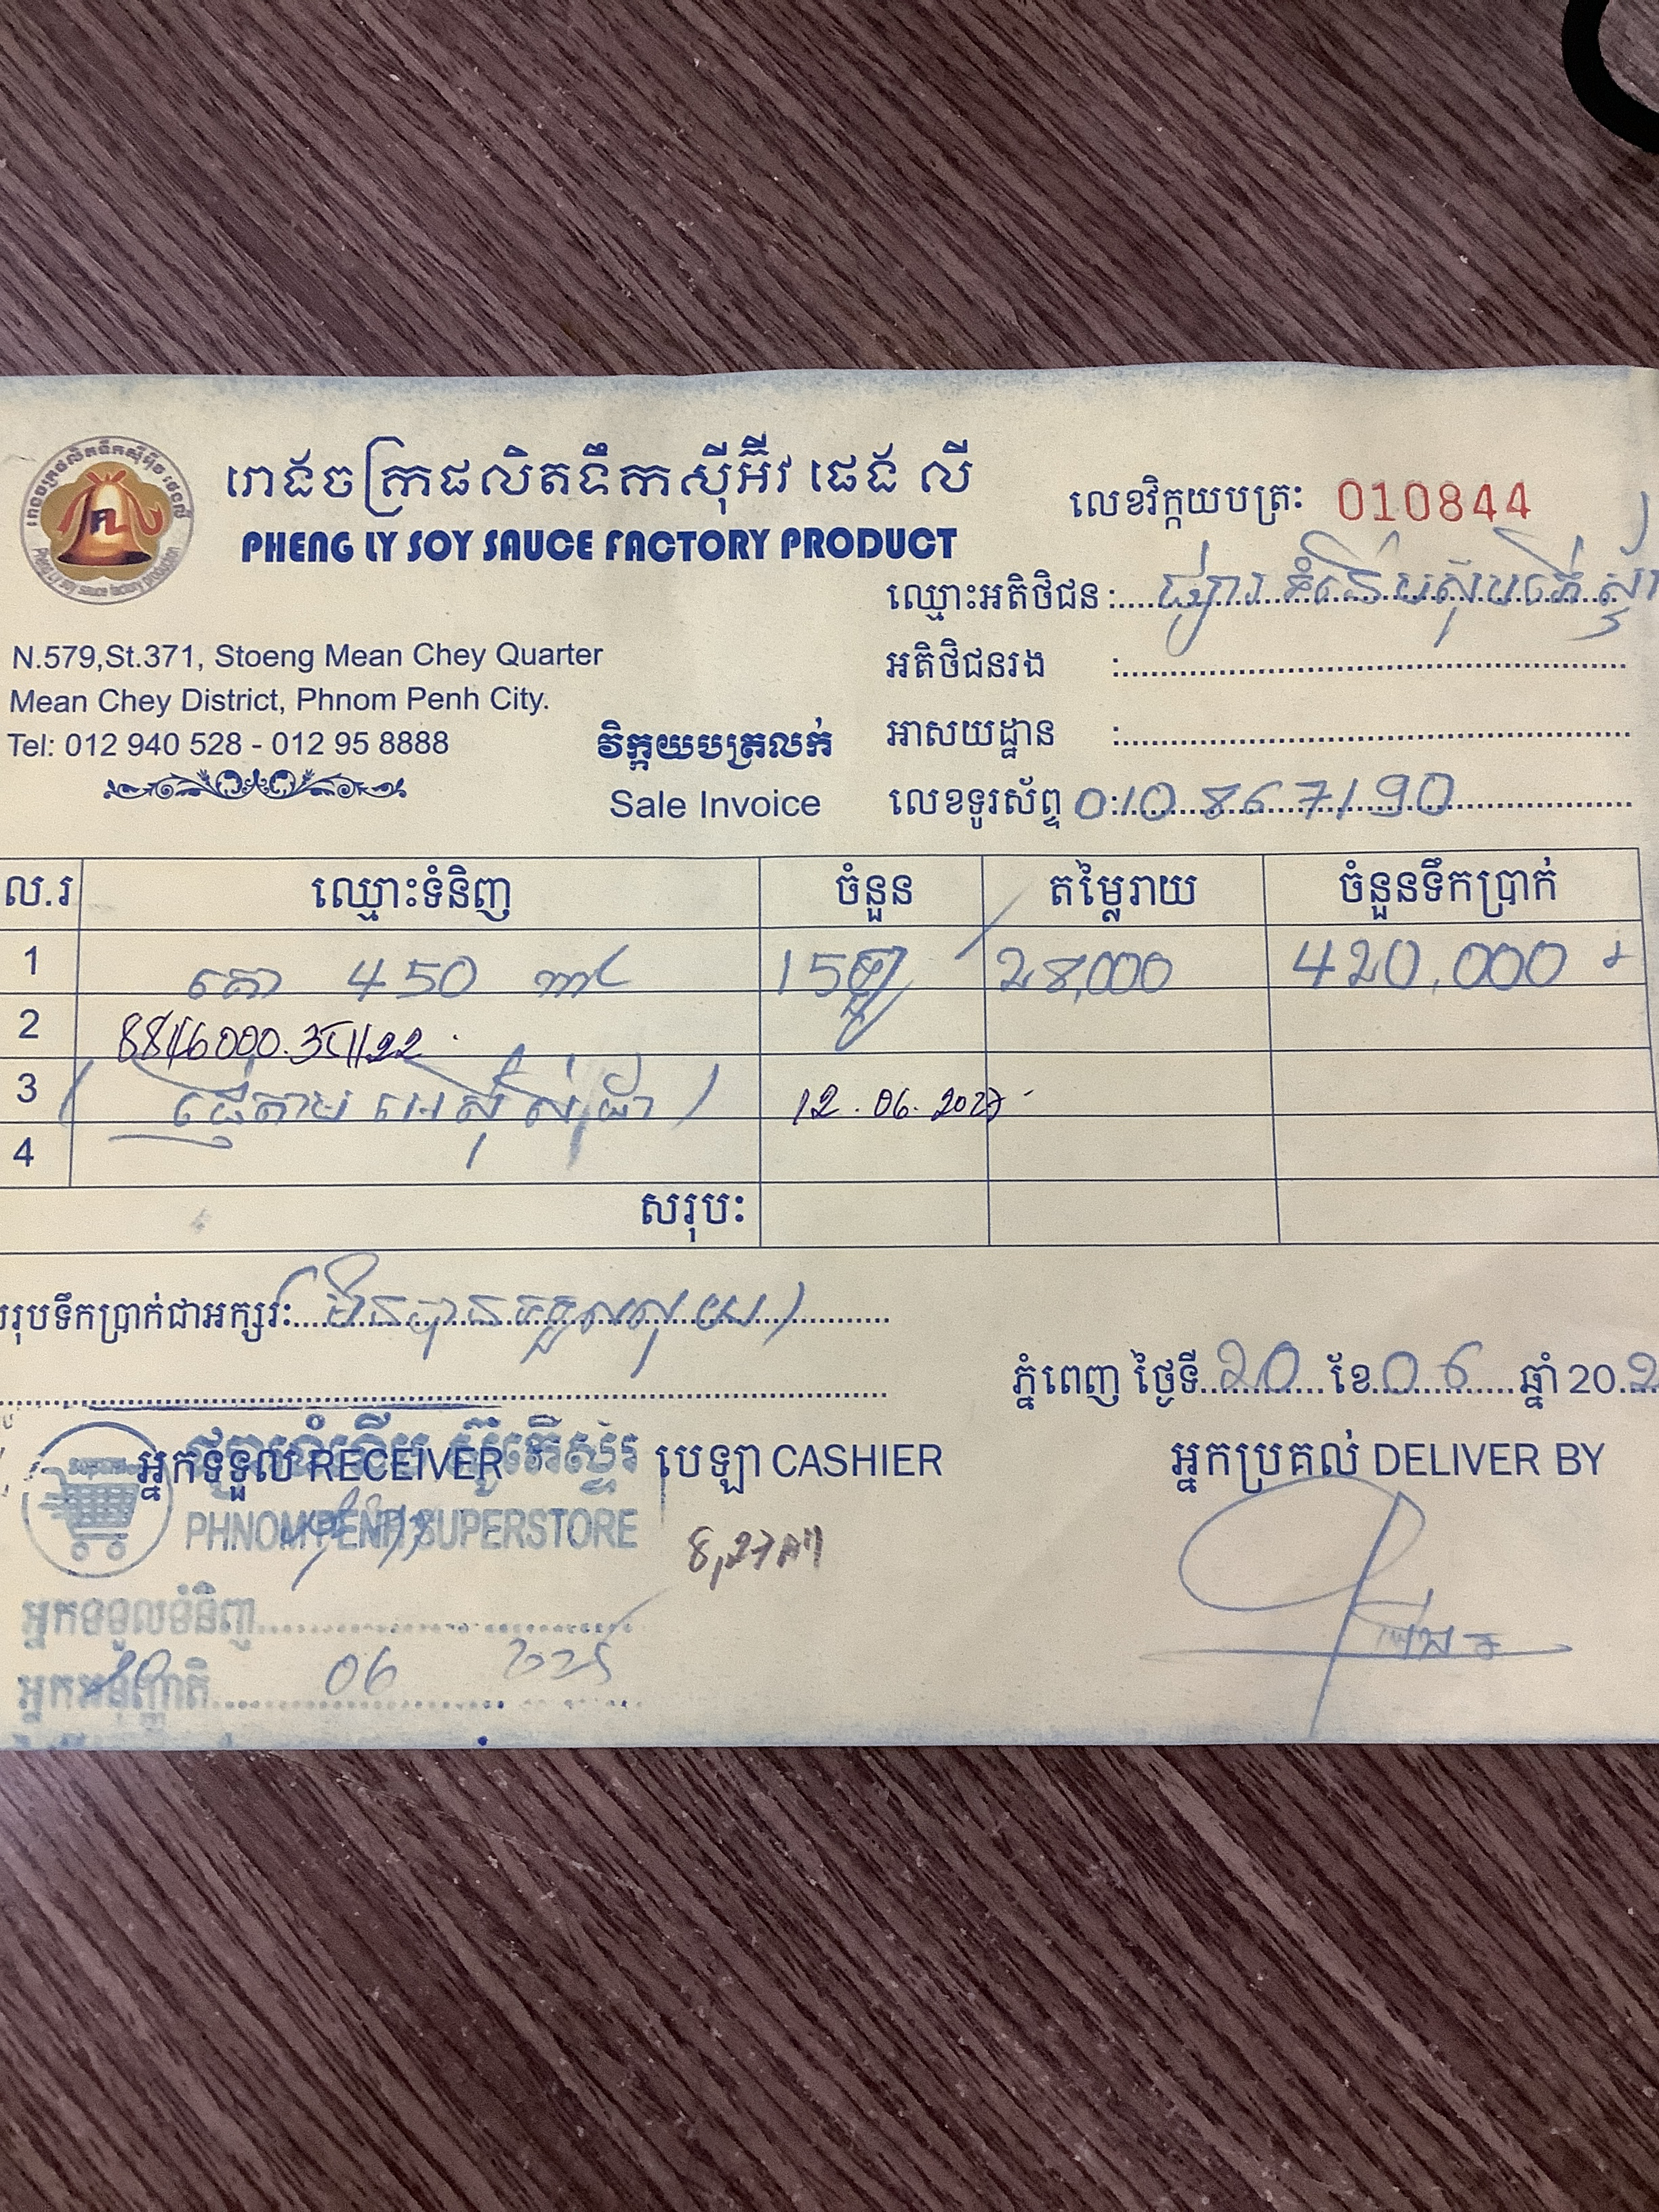 រោងចក្រផលិតទឹកស៊ីអ៊ីវ ផេង លី
PHENG LY SOY SAUCE FACTORY PRODUCT
លេខវិក្កយបត្រ: 010844
ឈ្មោះអតិថិជន :
អតិថិជនរង :
អាសយដ្ឋាន :
លេខទូរស័ព្ទ : 010 867190
N.579,St.371, Stoeng Mean Chey Quarter
Mean Chey District, Phnom Penh City.
Tel: 012 940 528 - 012 95 8888
វិក្កយបត្រលក់
Sale Invoice
ល.រ ឈ្មោះទំនិញ ចំនួន តម្លៃរាយ ចំនួនទឹកប្រាក់
1 គោ 450 ml 15 28,000 420,000
2
3 12.06.2027
4
សរុប:
សរុបទឹកប្រាក់ជាអក្សរ:
ភ្នំពេញ ថ្ងៃទី 20 ខែ 06 ឆ្នាំ 202
អ្នកទទួល RECEIVER បេឡា CASHIER អ្នកប្រគល់ DELIVER BY
PHNOM PENH SUPERSTORE
អ្នកទទួលទំនិញ
អ្នកអនុញ្ញាតិ
20 06 2025